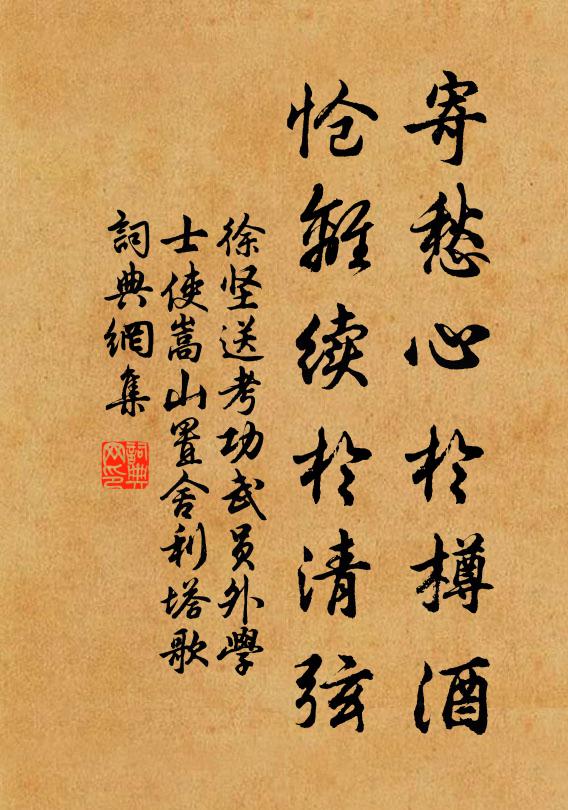 寄愁心於樽酒
怆離续於清弦
徐坚送考功武员外學
士使嵩山置舍利塔歌
詞典網集
詞典网印